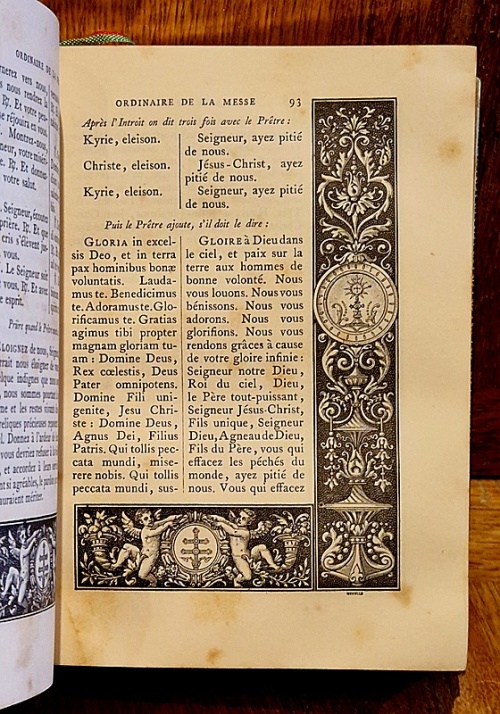 ORDINAIRE DE
nerez vers nous,
nous vendrez la
℟. Et votre peu-
se réjouira en vous.
Montrez-nous,
℟. Et donnez-
votre salut.
Seigneur, écoutez
prière. ℟. Et que
cris s'élèvent jus-
vous.
Le Seigneur soit
vous, ℟. Et avec
esprit.
Prière quand le Prêtre
ÉLOIGNEZ de nous,
ORDINAIRE DE LA MESSE 93
Après l'Introït on dit trois fois avec le Prêtre :
Kyrie, eleison.
Christe, eleison.
Kyrie, eleison.
Seigneur, ayez pitié
de nous.
Jésus-Christ, ayez
pitié de nous.
Seigneur, ayez pitié
de nous.
Puis le Prêtre ajoute, s'il doit le dire :
GLORIA in excel-
sis Deo, et in terra
pax hominibus bonæ
voluntatis. Lauda-
mus te. Benedicimus
te. Adoramus te. Glo-
rificamus te. Gratias
agimus tibi propter
magnam gloriam tu-
am : Domine Deus,
Rex cœlestis, Deus
Pater omnipotens.
Domine Fili uni-
genite, Jesu Chri-
ste : Domine Deus,
Agnus Dei, Filius
Patris. Qui tollis pec-
cata mundi, mise-
rere nobis. Qui tollis
peccata mundi, sus-
GLOIRE à Dieu dans
le ciel, et paix sur la
terre aux hommes de
bonne volonté. Nous
vous louons. Nous vous
bénissons. Nous vous
adorons. Nous vous
glorifions. Nous vous
rendons grâces à cause
de votre gloire infinie :
Seigneur notre Dieu,
Roi du ciel, Dieu,
le Père tout-puissant,
Seigneur Jésus-Christ,
Fils unique, Seigneur
Dieu, Agneau de Dieu,
Fils du Père, vous qui
effacez les péchés du
monde, ayez pitié de
nous. Vous qui effacez